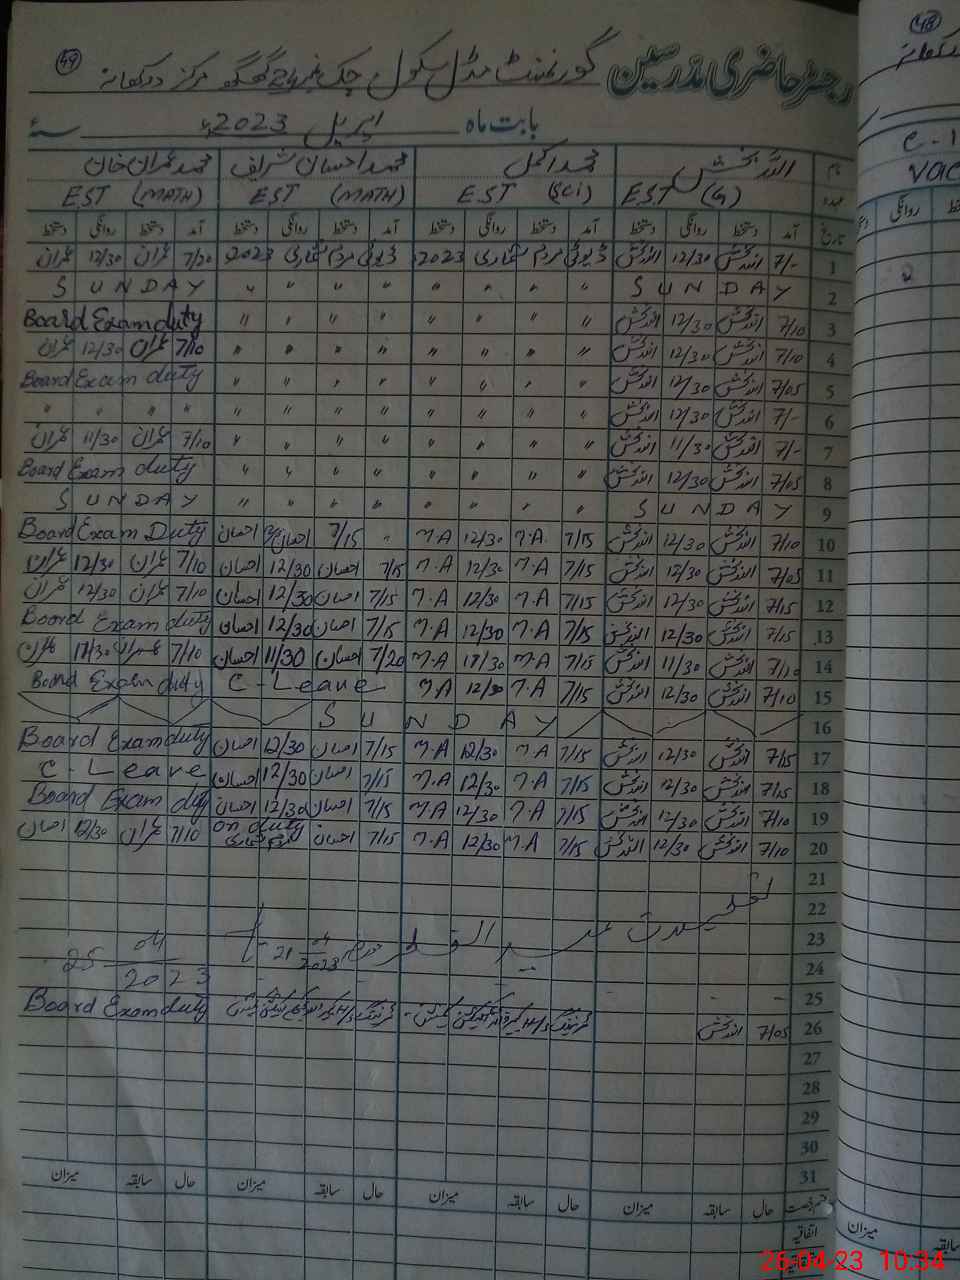 49
رجسٹر حاضری مدرسین گورنمنٹ مڈل سکول چک نمبر 24 گھگھ مرکز درکھانہ
بابت ماہ اپریل 2023ء سنہ
نام اللہ بخش محمد اکمل محمد احسان شریف محمد عمران خان
عہدہ EST (G) EST (Sci) EST (MATH) EST (MATH)
تاریخ آمد دستخط روانگی دستخط آمد دستخط روانگی دستخط آمد دستخط روانگی دستخط آمد دستخط روانگی دستخط
1 7/- اللہ بخش 12/30 اللہ بخش ڈیوٹی مردم شماری 2023 ڈیوٹی مردم شماری 2023 7/20 عمران 12/30 عمران
2 SUNDAY " " " " " " " " SUNDAY
3 7/10 اللہ بخش 12/30 اللہ بخش " " " " " " " " Board Exam duty
4 7/10 اللہ بخش 12/30 اللہ بخش " " " " " " " " 7/10 عمران 12/30 عمران
5 7/05 اللہ بخش 12/30 اللہ بخش " " " " " " " " Board Exam duty
6 7/- اللہ بخش 12/30 اللہ بخش " " " " " " " " " " " "
7 7/- اللہ بخش 11/30 اللہ بخش " " " " " " " " 7/10 عمران 11/30 عمران
8 7/05 اللہ بخش 12/30 اللہ بخش " " " " " " " " Board Exam duty
9 SUNDAY " " " " " " " " SUNDAY
10 7/10 اللہ بخش 12/30 اللہ بخش 7/15 M.A 12/30 M.A " 7/15 احسان احسان Board Exam Duty
11 7/05 اللہ بخش 12/30 اللہ بخش 7/15 M.A 12/30 M.A 7/15 احسان 12/30 احسان 7/10 عمران 12/30 عمران
12 7/15 اللہ بخش 12/30 اللہ بخش 7/15 M.A 12/30 M.A 7/15 احسان 12/30 احسان 7/10 عمران 12/30 عمران
13 7/15 اللہ بخش 12/30 اللہ بخش 7/15 M.A 12/30 M.A 7/15 احسان 12/30 احسان Board Exam duty
14 7/10 اللہ بخش 11/30 اللہ بخش 7/15 M.A 11/30 M.A 7/20 احسان 11/30 احسان 7/10 عمران 11/30 عمران
15 7/10 اللہ بخش 12/30 اللہ بخش 7/15 M.A 12/30 M.A C-Leave Board Exam duty
16 SUNDAY
17 7/15 اللہ بخش 12/30 اللہ بخش 7/15 M.A 12/30 M.A 7/15 احسان 12/30 احسان Board Exam duty
18 7/15 اللہ بخش 12/30 اللہ بخش 7/15 M.A 12/30 M.A 7/15 احسان 12/30 احسان C-Leave
19 7/10 اللہ بخش 12/30 اللہ بخش 7/15 M.A 12/30 M.A 7/15 احسان 12/30 احسان Board Exam duty
20 7/10 اللہ بخش 12/30 اللہ بخش 7/15 M.A 12/30 M.A 7/15 احسان on duty مردم شماری 7/10 عمران 12/30
21
22
23 عید الفطر مورخہ 21-04-2023 25-04-2023
24
25
26 7/05 اللہ بخش Board Exam duty
27
28
29
30
31
قسم رخصت حال سابقہ میزان حال سابقہ میزان حال سابقہ میزان حال سابقہ میزان
اتفاقیہ
48
C-1
VAC
روانگی
2
میزان
سابقہ
26-04-23 10:34